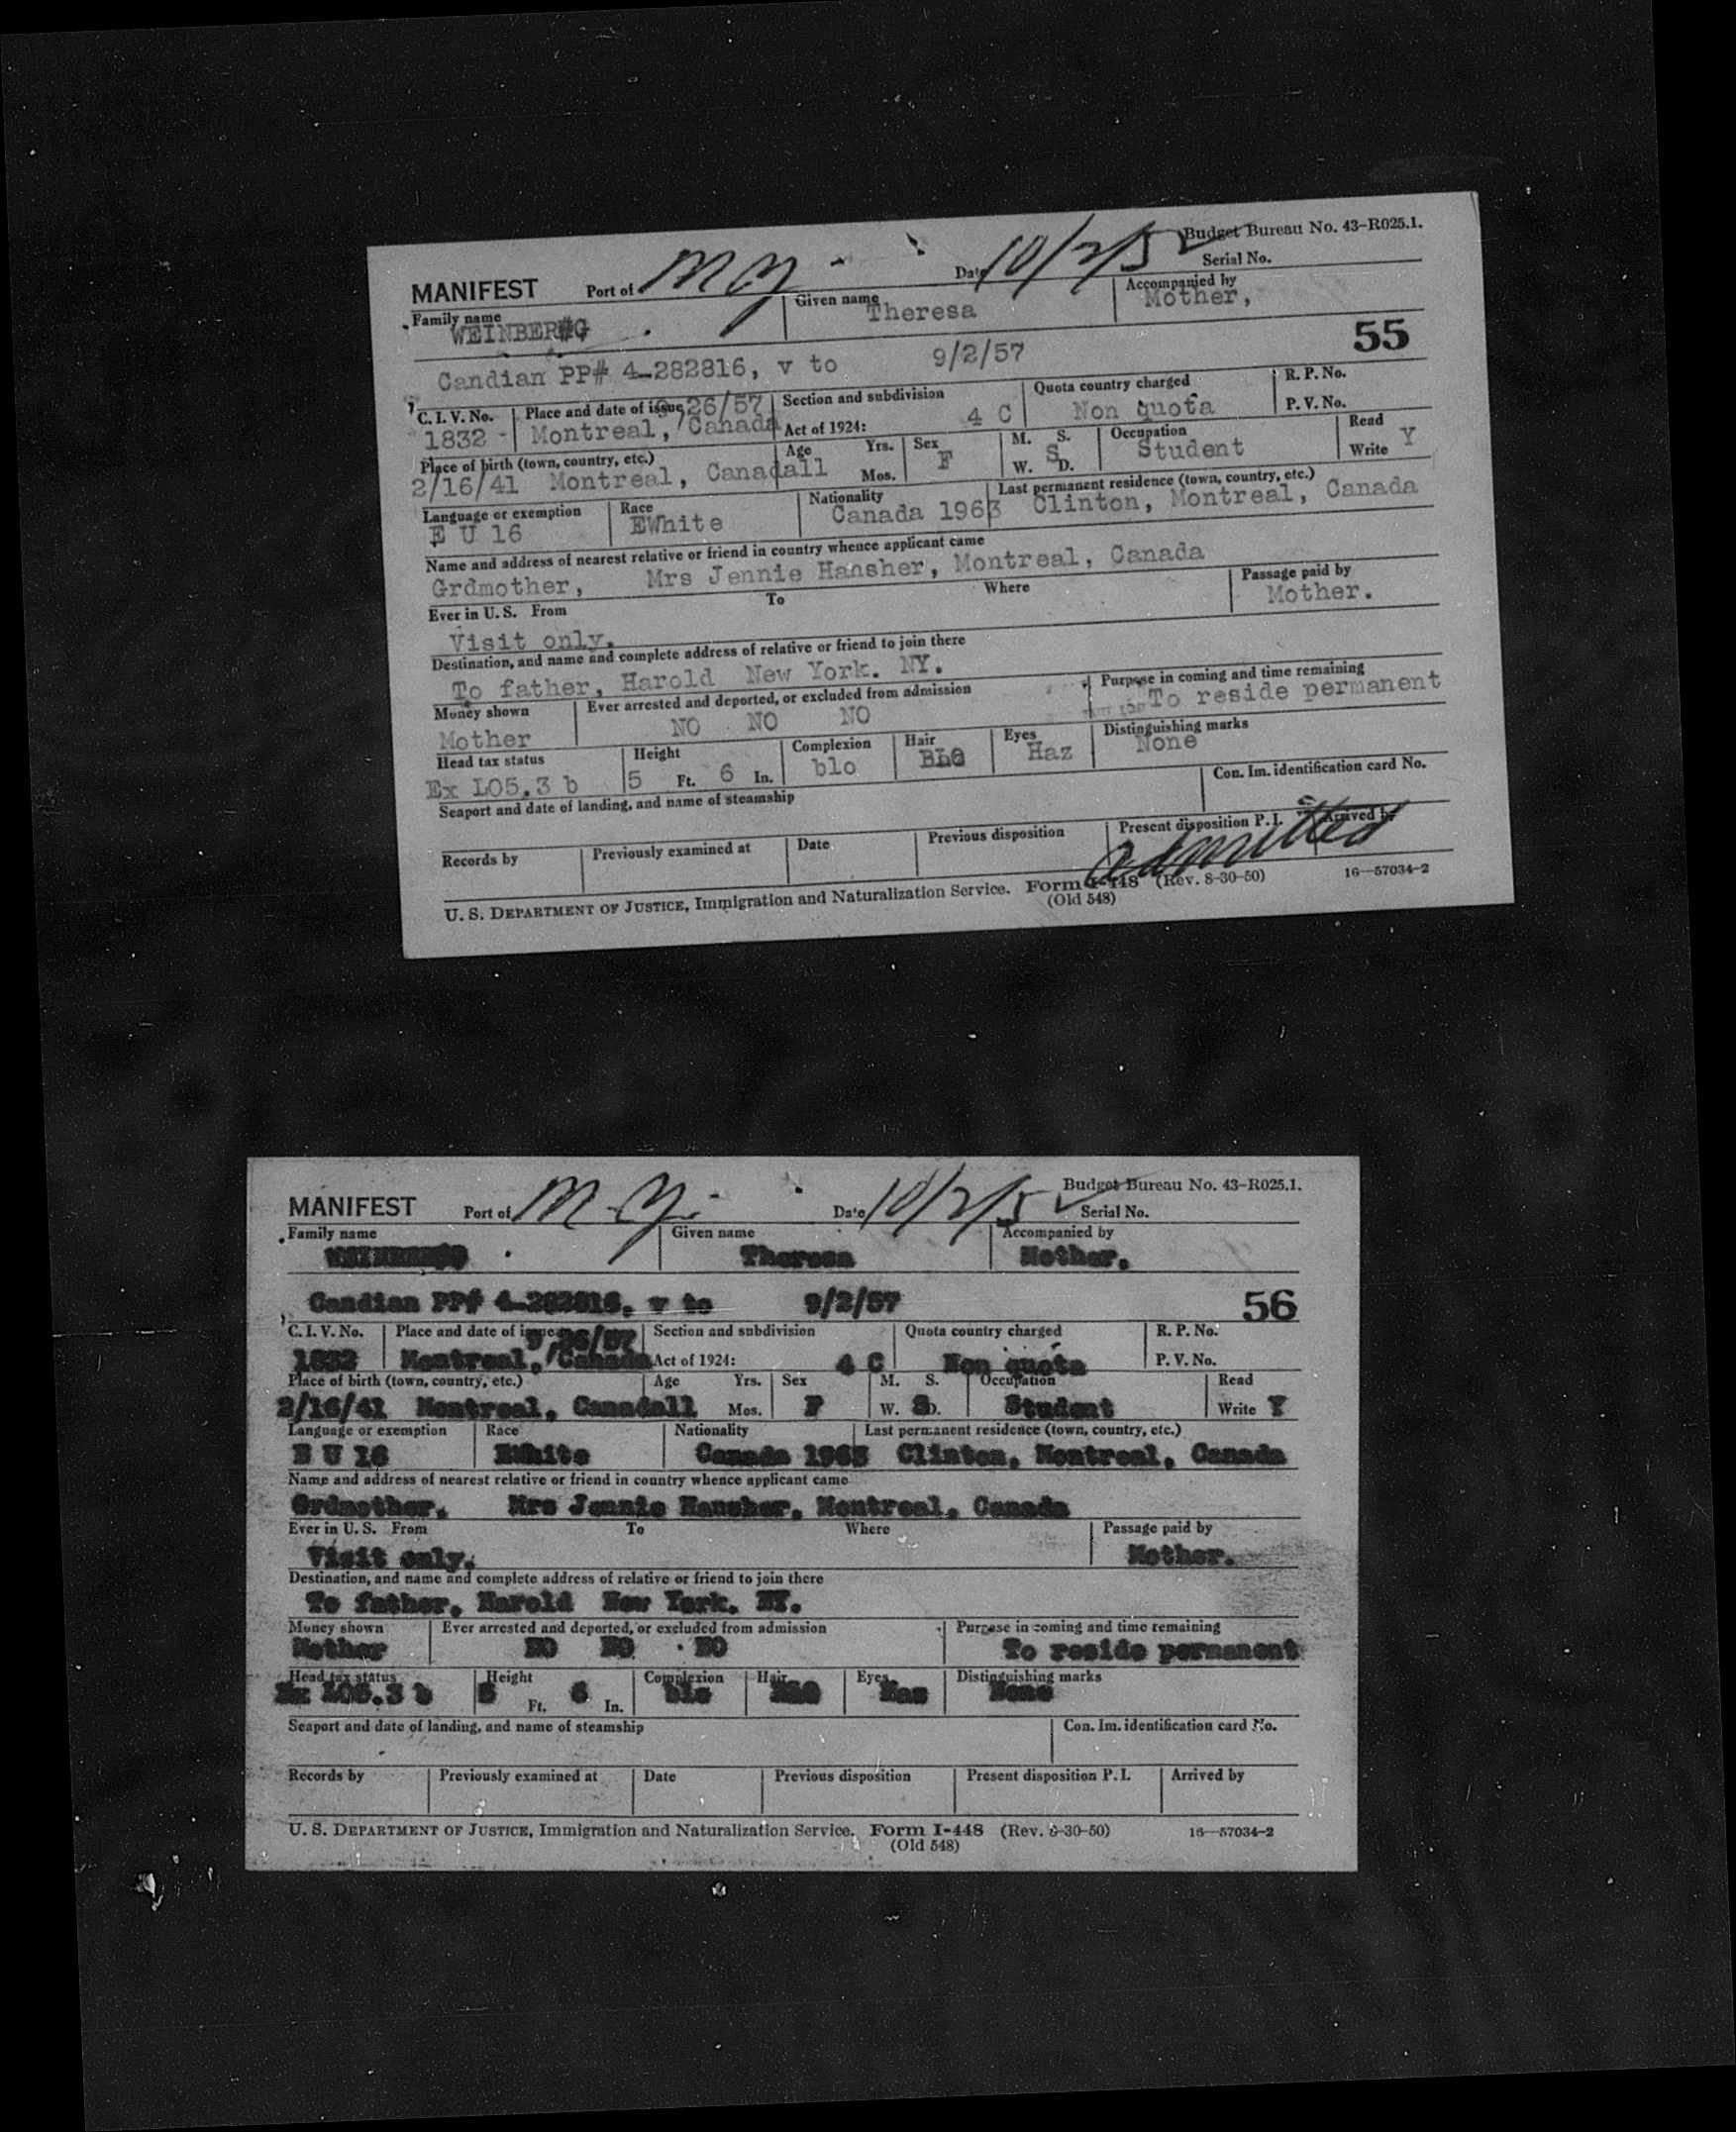 Budget Bureau No. 43-R025.1.
MANIFEST Port of N Y - Date 10/2/52 Serial No.
Family name WEINBER#G Given name Theresa Accompanied by Mother,
Candian PP# 4-282816, v to 9/2/57 55
C. I. V. No. 1832 - Place and date of issue 9/26/57 Montreal, Canada Section and subdivision Act of 1924: 4 C Quota country charged Non quota R. P. No. P. V. No.
Place of birth (town, country, etc.) 2/16/41 Montreal, Canada Age 11 Yrs. Mos. Sex F M. S. W. D. S Occupation Student Read Write Y
Language or exemption E U 16 Race EWhite Nationality Canada 1963 Last permanent residence (town, country, etc.) Clinton, Montreal, Canada
Name and address of nearest relative or friend in country whence applicant came
Grdmother, Mrs Jennie Hansher, Montreal, Canada
Ever in U. S. From To Where Passage paid by
Visit only. Mother.
Destination, and name and complete address of relative or friend to join there
To father, Harold New York. NY.
Money shown Mother Ever arrested and deported, or excluded from admission NO NO NO Purpose in coming and time remaining To reside permanent
Head tax status Ex LO5.3 b Height 5 Ft. 6 In. Complexion blo Hair Eyes Haz Distinguishing marks None
Seaport and date of landing, and name of steamship Con. Im. identification card No.
Records by Previously examined at Date Previous disposition Present disposition P. I. Arrived by
admitted
U. S. DEPARTMENT OF JUSTICE, Immigration and Naturalization Service. Form I-448 (Rev. 8-30-50) 16—57034-2
(Old 548)
Budget Bureau No. 43-R025.1.
MANIFEST Port of N Y - Date 10/2/52 Serial No.
Family name Given name Theresa Accompanied by Mother,
Candian PP# 4-282816, v to 9/2/57 56
C. I. V. No. 1832 Place and date of issue 9/26/57 Montreal, Canada Section and subdivision Act of 1924: 4 C Quota country charged Non quota R. P. No. P. V. No.
Place of birth (town, country, etc.) 2/16/41 Montreal, Canada Age 11 Yrs. Mos. Sex F M. S. W. D. S Occupation Student Read Write Y
Language or exemption E U 16 Race EWhite Nationality Canada 1963 Last permanent residence (town, country, etc.) Clinton, Montreal, Canada
Name and address of nearest relative or friend in country whence applicant came
Grdmother, Mrs Jennie Hansher, Montreal, Canada
Ever in U. S. From To Where Passage paid by
Visit only. Mother.
Destination, and name and complete address of relative or friend to join there
To father, Harold New York. NY.
Money shown Mother Ever arrested and deported, or excluded from admission NO NO NO Purpose in coming and time remaining To reside permanent
Head tax status Ex LO5.3 b Height 5 Ft. 6 In. Complexion blo Hair Eyes Haz Distinguishing marks None
Seaport and date of landing, and name of steamship Con. Im. identification card No.
Records by Previously examined at Date Previous disposition Present disposition P. I. Arrived by
U. S. DEPARTMENT OF JUSTICE, Immigration and Naturalization Service. Form I-448 (Rev. 8-30-50) 16—57034-2
(Old 548)